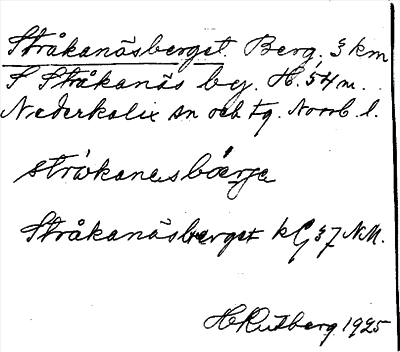 Stråkanäsberget. Berg, 3 km
S Stråkanäs by. H. 54 m.
Nederkalix sn och tg. Norrb. l.
Stråkanäsberget kG 37 N.M.
H Rutberg 1925